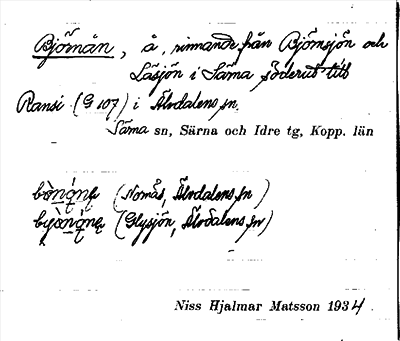 Björnån, å, rinnande från Björnsjön och
Låsjön i Särna söderut till
Ransi (G 107) i Älvdalens sn.
Särna sn, Särna och Idre tg, Kopp. län
(Nomås, Älvdalens sn)
(Glysjön, Älvdalens sn)
Niss Hjalmar Matsson 1934.